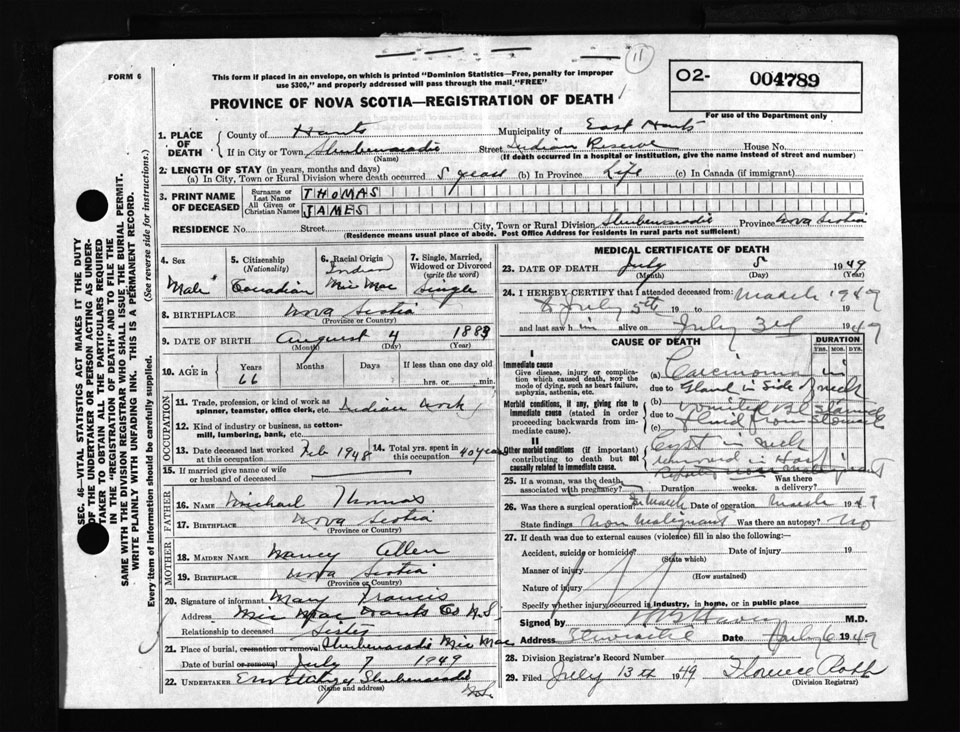 FORM 6
This form if placed in an envelope, on which is printed "Dominion Statistics—Free, penalty for improper
use $300," and properly addressed will pass through the mail "FREE"
11
O2- 004789
For use of the Department only
PROVINCE OF NOVA SCOTIA—REGISTRATION OF DEATH
1. PLACE OF DEATH
County of Hants Municipality of East Hants
If in City or Town Shubenacadie (Name) Street Indian Reserve House No.
(If death occurred in a hospital or institution, give the name instead of street and number)
2. LENGTH OF STAY (in years, months and days)
(a) In City, Town or Rural Division where death occurred 5 years (b) In Province Life (c) In Canada (if immigrant)
3. PRINT NAME OF DECEASED
Surname or Last Name THOMAS
All Given or Christian Names JAMES
RESIDENCE No. Street City, Town or Rural Division Shubenacadie Province Nova Scotia
(Residence means usual place of abode. Post Office Address for residents in rural parts not sufficient)
4. Sex Male
5. Citizenship (Nationality) Canadian
6. Racial Origin Indian Mic Mac
7. Single, Married, Widowed or Divorced (write the word) Single
8. BIRTHPLACE Nova Scotia
(Province or Country)
9. DATE OF BIRTH August 4 1883
(Month) (Day) (Year)
10. AGE in Years 66 Months Days If less than one day hrs. or min.
OCCUPATION
11. Trade, profession, or kind of work as spinner, teamster, office clerk, etc. Indian work
12. Kind of industry or business, as cotton-mill, lumbering, bank, etc.
13. Date deceased last worked at this occupation Feb 1948
14. Total yrs. spent in this occupation 40 years
15. If married give name of wife or husband of deceased
FATHER
16. NAME Michael Thomas
17. BIRTHPLACE Nova Scotia
(Province or Country)
MOTHER
18. MAIDEN NAME Nancy Allen
19. BIRTHPLACE Nova Scotia
(Province or Country)
20. Signature of informant Mary Francis
Address Mic Mac Hants Co N.S.
Relationship to deceased Sister
21. Place of burial, cremation or removal Shubenacadie Mic Mac
Date of burial or removal July 7 1949
22. UNDERTAKER Shubenacadie N.S.
(Name and address)
MEDICAL CERTIFICATE OF DEATH
23. DATE OF DEATH July 5 1949
(Month) (Day) (Year)
24. I HEREBY CERTIFY that I attended deceased from: March 1949
to July 5th 19 to 19
and last saw him alive on July 3rd 1949
CAUSE OF DEATH
DURATION
YRS. MOS. DYS.
I
Immediate cause
Give disease, injury or complication which caused death, NOT the mode of dying, such as heart failure, asphyxia, asthenia, etc.
(a) Carcinoma in
due to Gland in Side of neck
Morbid conditions, if any, giving rise to immediate cause (stated in order proceeding backwards from immediate cause).
(b) vomited
due to fluid from stomach
(c)
II
Other morbid conditions (if important) contributing to death but not causally related to immediate cause.
Cyst in neck
removed in Hosp
25. If a woman, was the death associated with pregnancy? Duration weeks. Was there a delivery?
26. Was there a surgical operation? In March Date of operation March 194
State findings Non Malignant Was there an autopsy? No
27. If death was due to external causes (violence) fill in also the following:
Accident, suicide or homicide? Date of injury 19
(State which)
Manner of injury
(How sustained)
Nature of injury
Specify whether injury occurred in industry, in home, or in public place
Signed by M.D.
Address Stewiacke Date July 6 1949
28. Division Registrar's Record Number
29. Filed July 13th 1949 Florence
(Division Registrar)
SEC. 46—VITAL STATISTICS ACT MAKES IT THE DUTY
OF THE UNDERTAKER OR PERSON ACTING AS UNDER-
TAKER TO OBTAIN ALL THE PARTICULARS REQUIRED
IN THE "REGISTRATION OF DEATH" AND TO FILE THE
SAME WITH THE DIVISION REGISTRAR WHO SHALL ISSUE THE BURIAL PERMIT.
WRITE PLAINLY WITH UNFADING INK. THIS IS A PERMANENT RECORD.
Every item of information should be carefully supplied. (See reverse side for instructions.)